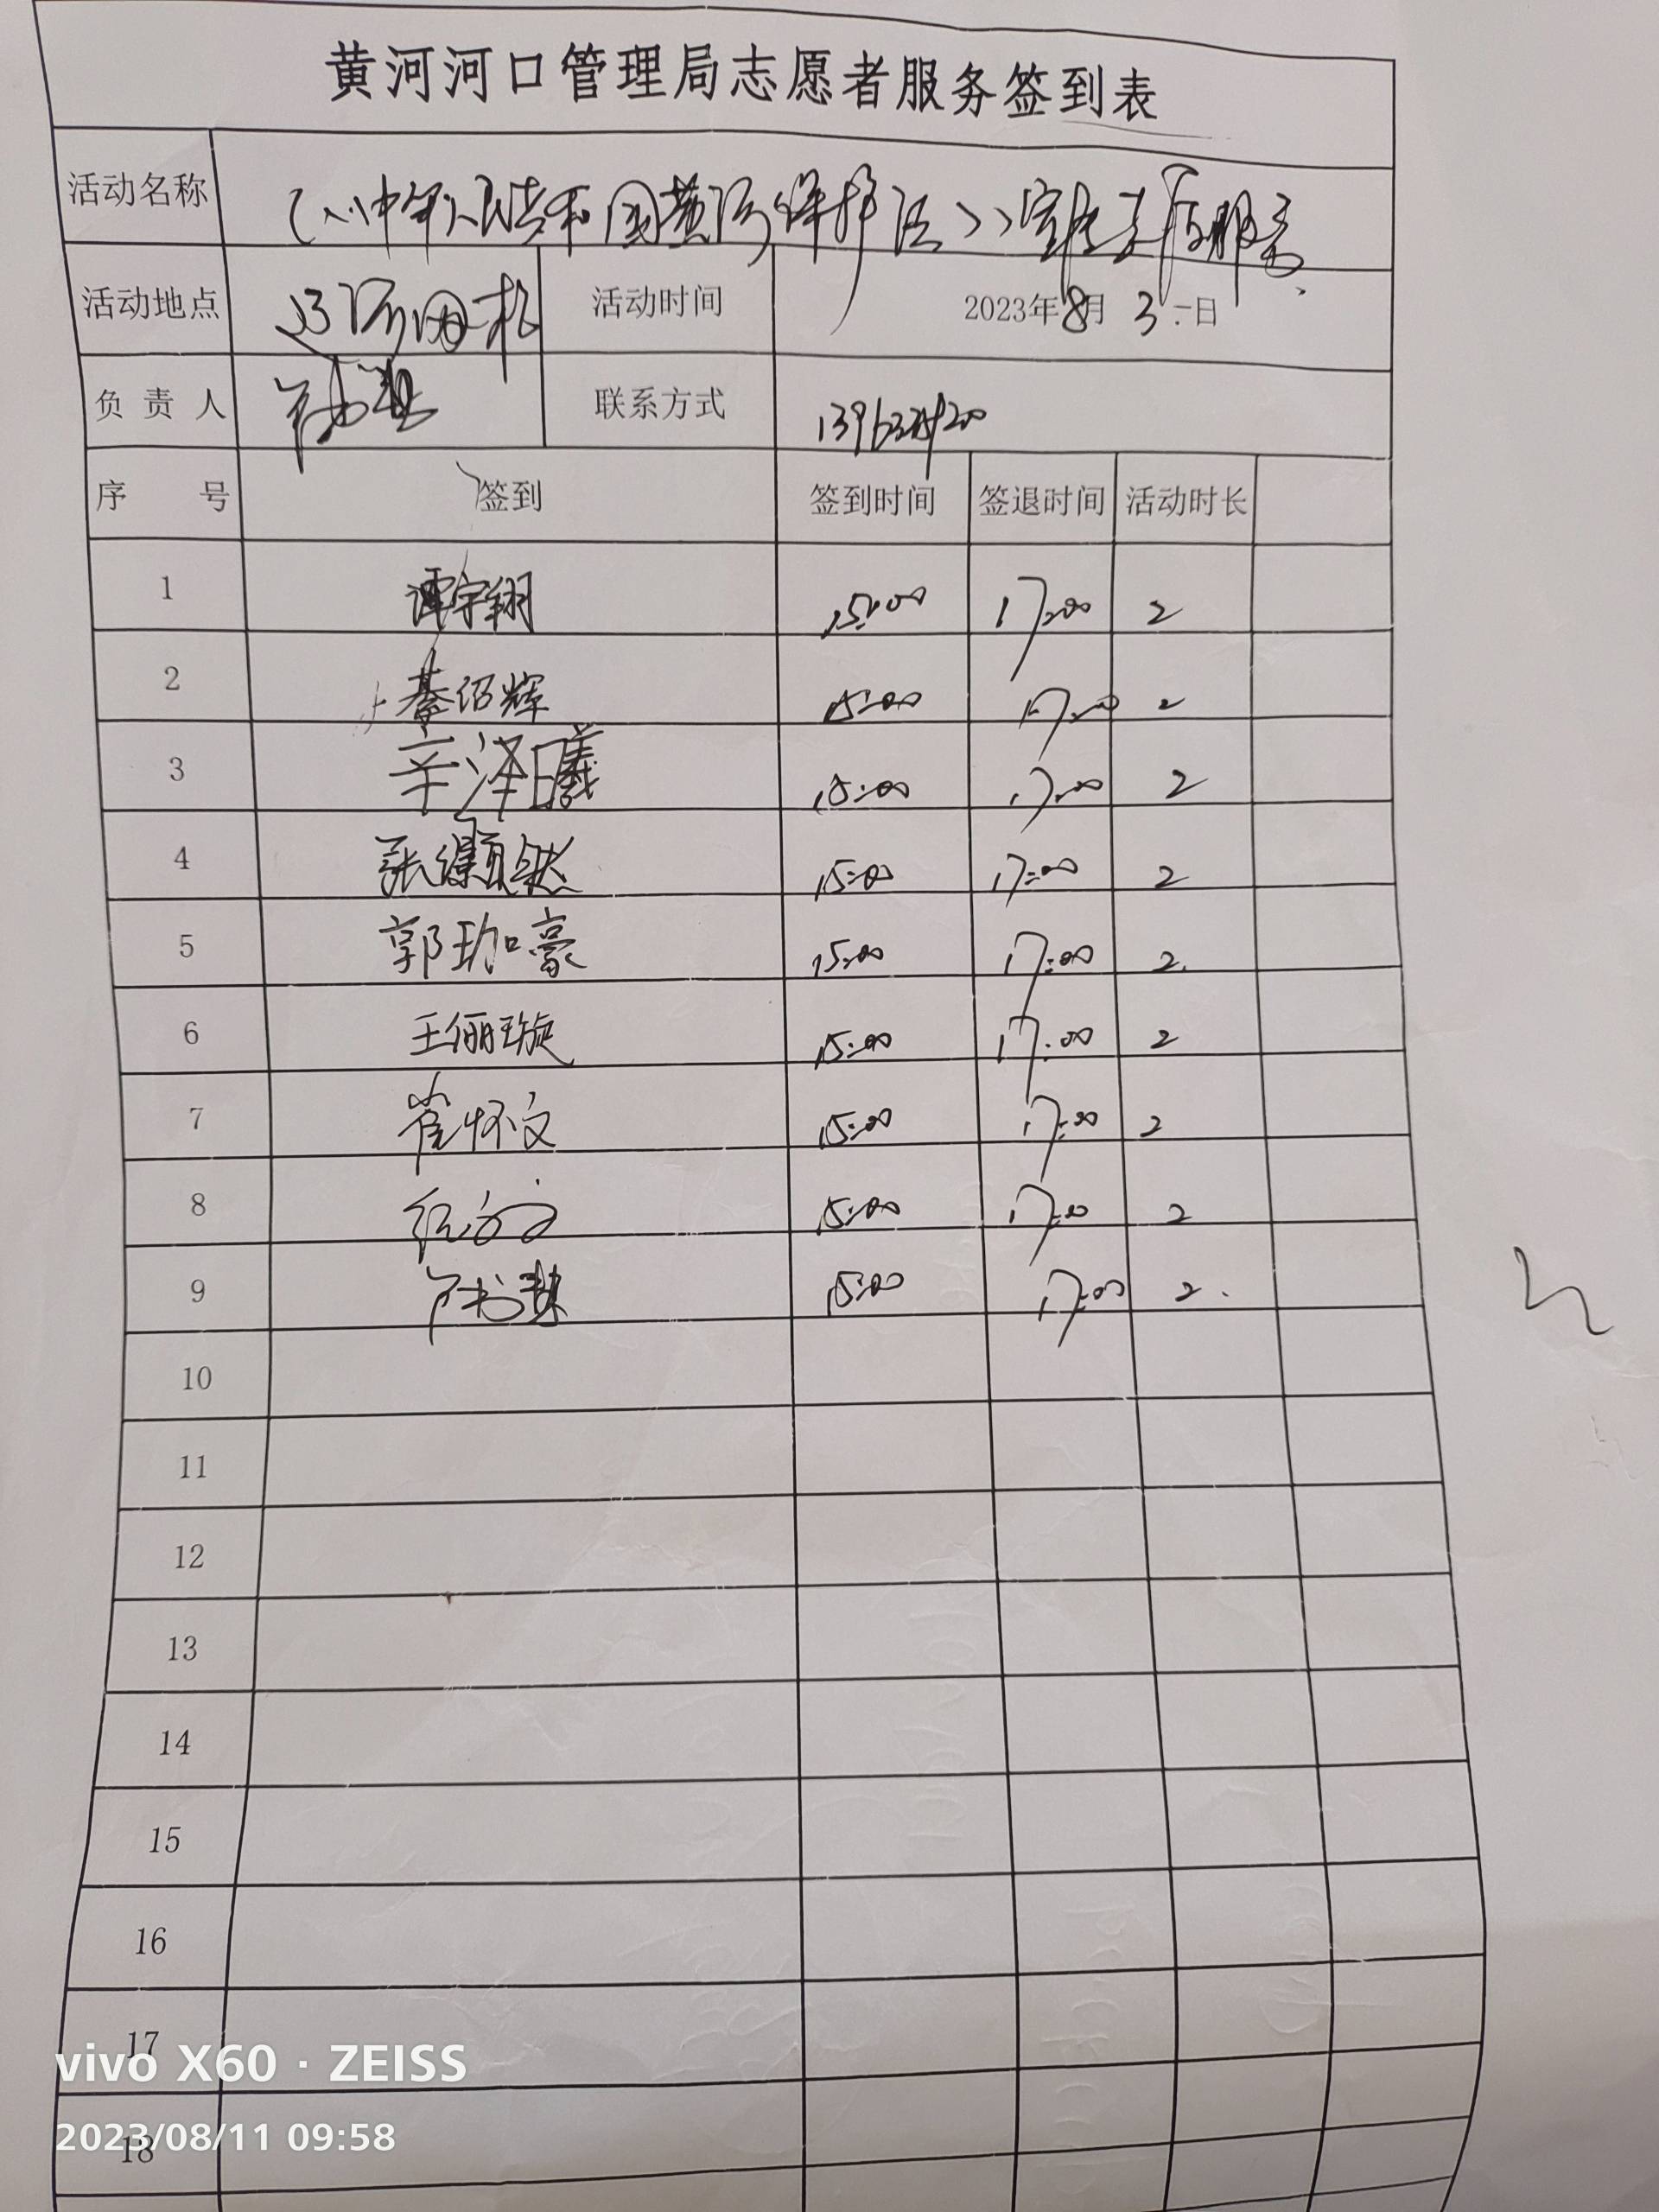 黄河河口管理局志愿者服务签到表
活动名称 《中华人民共和国黄河保护法》宣传志愿服务
活动地点 活动时间 2023年8月3日
负责人 联系方式
序号 签到 签到时间 签退时间 活动时长
1 谭宇翔 15:00 17:00 2
2 綦绍辉 15:00 17:00 2
3 辛泽曦 15:00 17:00 2
4 张灏然 15:00 17:00 2
5 郭珈豪 15:00 17:00 2
6 王俪璇 15:00 17:00 2
7 崔怀文 15:00 17:00 2
8 15:00 17:00 2
9 15:00 17:00 2
10
11
12
13
14
15
16
17
18
vivo X60 · ZEISS
2023/08/11 09:58